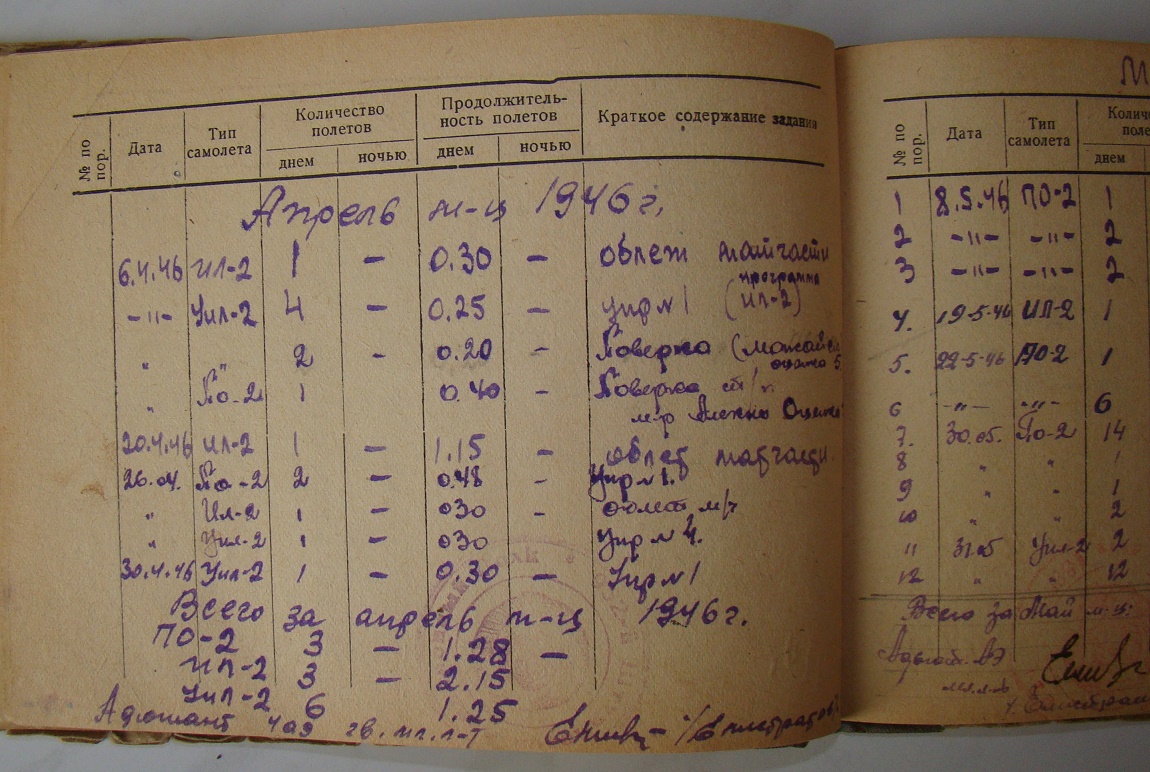 № по пор. Дата Тип самолета Количество полетов днем ночью Продолжитель- ность полетов днем ночью Краткое содержание задания
Апрель м-ц 1946 г.
6.4.46 Ил-2 1 - 0.30 - облет матчасти
программа
-"- Уил-2 4 - 0.25 - упр №1 (Ил-2)
" " 2 - 0.20 - Поверка
" По-2 1 - 0.40 - Поверка
м-р
20.4.46 Ил-2 1 - 1.15 - облет матчасти.
26.04. По-2 2 - 0.48 - Упр №1.
" Ил-2 1 - 030 - облет м/ч
" Уил-2 1 - 030 Упр № 4.
30.4.46 Уил-2 1 - 0.30 - Упр №1
Всего за апрель м-ц 1946 г.
ПО-2 3 - 1.28 -
Ил-2 3 - 2.15
Уил-2 6 1.25
Адютант 4 аэ гв. мл. л-т /Елистратов
№ по пор. Дата Тип самолета днем
1 8.5.46 ПО-2 1
2 -"- -"- 2
3 -"- -"- 2
4. 19-5-46 ИЛ-2 1
5. 22-5-46 ПО-2 1
6 -"- -"- 6
7. 30.05. По-2 14
8 " " 1
9 " " 1
10 " " 2
11 31.05 Уил-2 2
12 " " 12
Всего за Май м-ц:
Адъют. АЭ